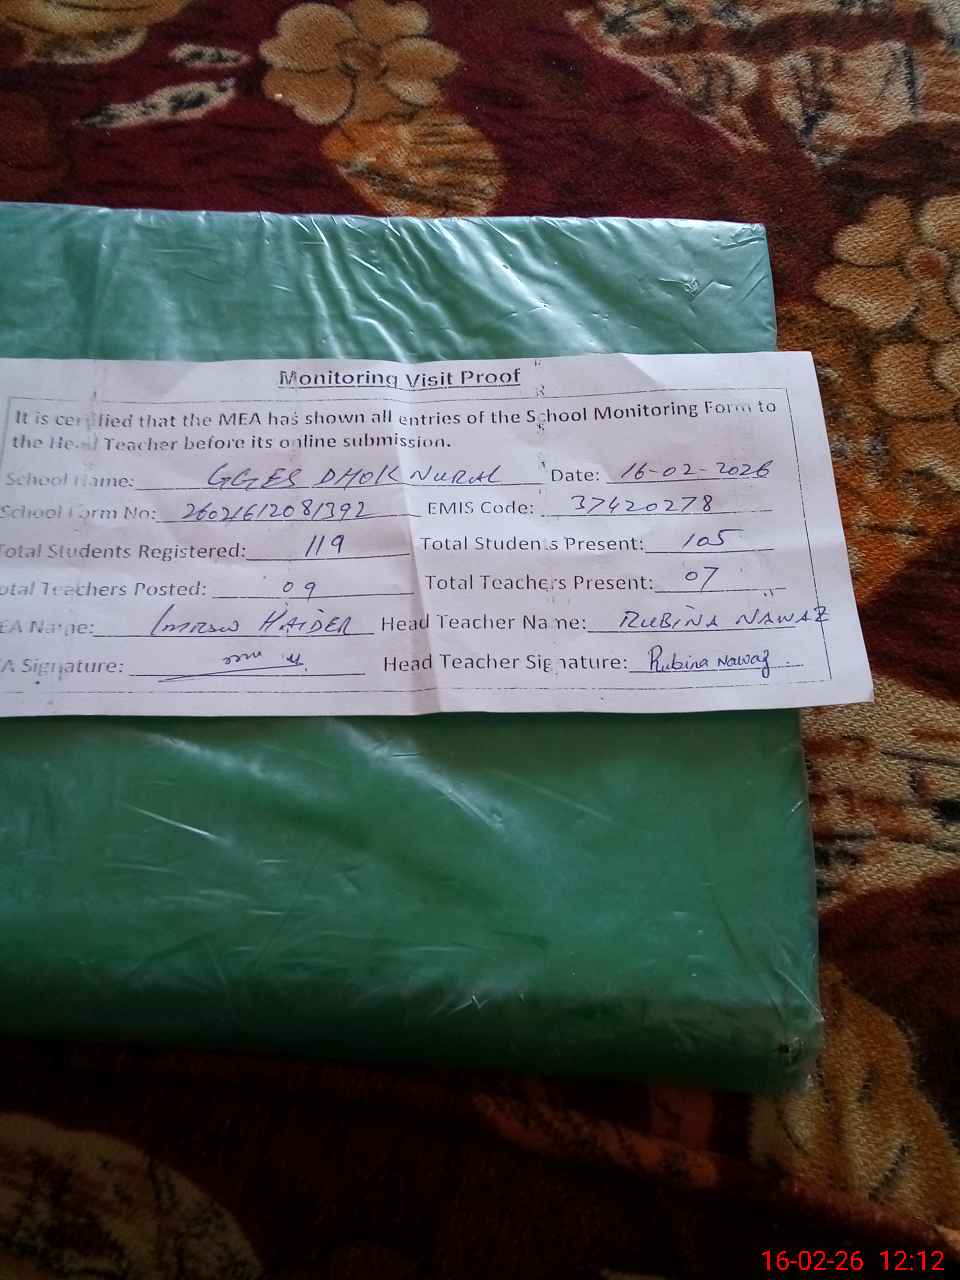 Monitoring Visit Proof
It is certified that the MEA has shown all entries of the School Monitoring Form to
the Head Teacher before its online submission.
School Name: GGES DHOK NURAL Date: 16-02-2026
School Form No: 26021612081392 EMIS Code: 37420278
Total Students Registered: 119 Total Students Present: 105
otal Teachers Posted: 09 Total Teachers Present: 07
EA Name: Imran HAIDER Head Teacher Name: RUBINA NAWAZ
A Signature: Head Teacher Signature: Rubina Nawaz
16-02-26 12:12